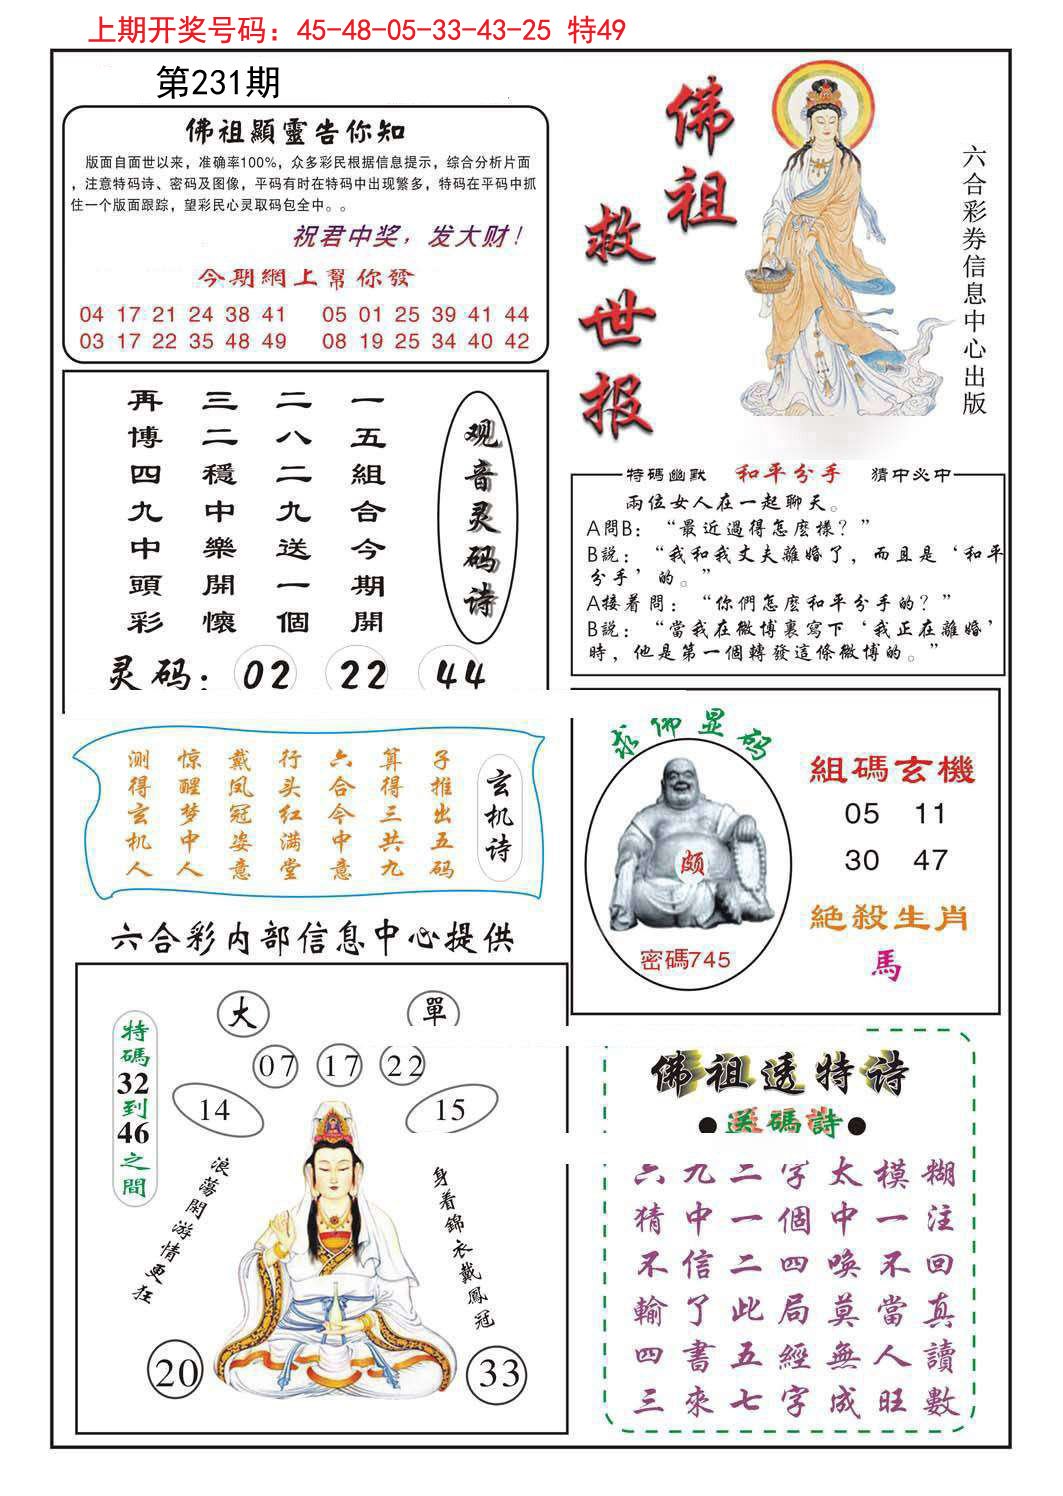 上期开奖号码：45-48-05-33-43-25 特49
第231期
佛祖顯靈告你知
版面自面世以来，准确率100%，众多彩民根据信息提示，综合分析片面
，注意特码诗、密码及图像，平码有时在特码中出现繁多，特码在平码中抓
住一个版面跟踪，望彩民心灵取码包全中。。
祝君中奖，发大财！
今期網上幫你發
04 17 21 24 38 41 05 01 25 39 41 44
03 17 22 35 48 49 08 19 25 34 40 42
佛祖
救世报
六合彩券信息中心出版
观音灵码诗
一五組合今期開
二八二九送一個
三二穩中樂開懷
再博四九中頭彩
灵码：02 22 44
特碼幽默 和平分手 猜中必中
兩位女人在一起聊天。
A問B：“最近過得怎麽樣？”
B説：“我和我丈夫離婚了，而且是‘和平
分手’的。”
A接着問：“你們怎麽和平分手的？”
B説：“當我在微博裏寫下‘我正在離婚’
時，他是第一個轉發這條微博的。”
玄机诗
子推出五码
算得三共九
六合今中意
行头红满堂
戴凤冠姿意
惊醒梦中人
测得玄机人
求佛显码
颇
密碼745
組碼玄機
05 11
30 47
絶殺生肖
馬
六合彩内部信息中心提供
大 單
07 17 22
14 15
特碼32到46之間
浪蕩閑游情更狂
身着錦衣戴鳳冠
20 33
佛祖透特诗
●送碼詩●
六九二字太模糊
猜中一個中一注
不信二四唤不回
輸了此局莫當真
四書五經無人讀
三來七字成旺數